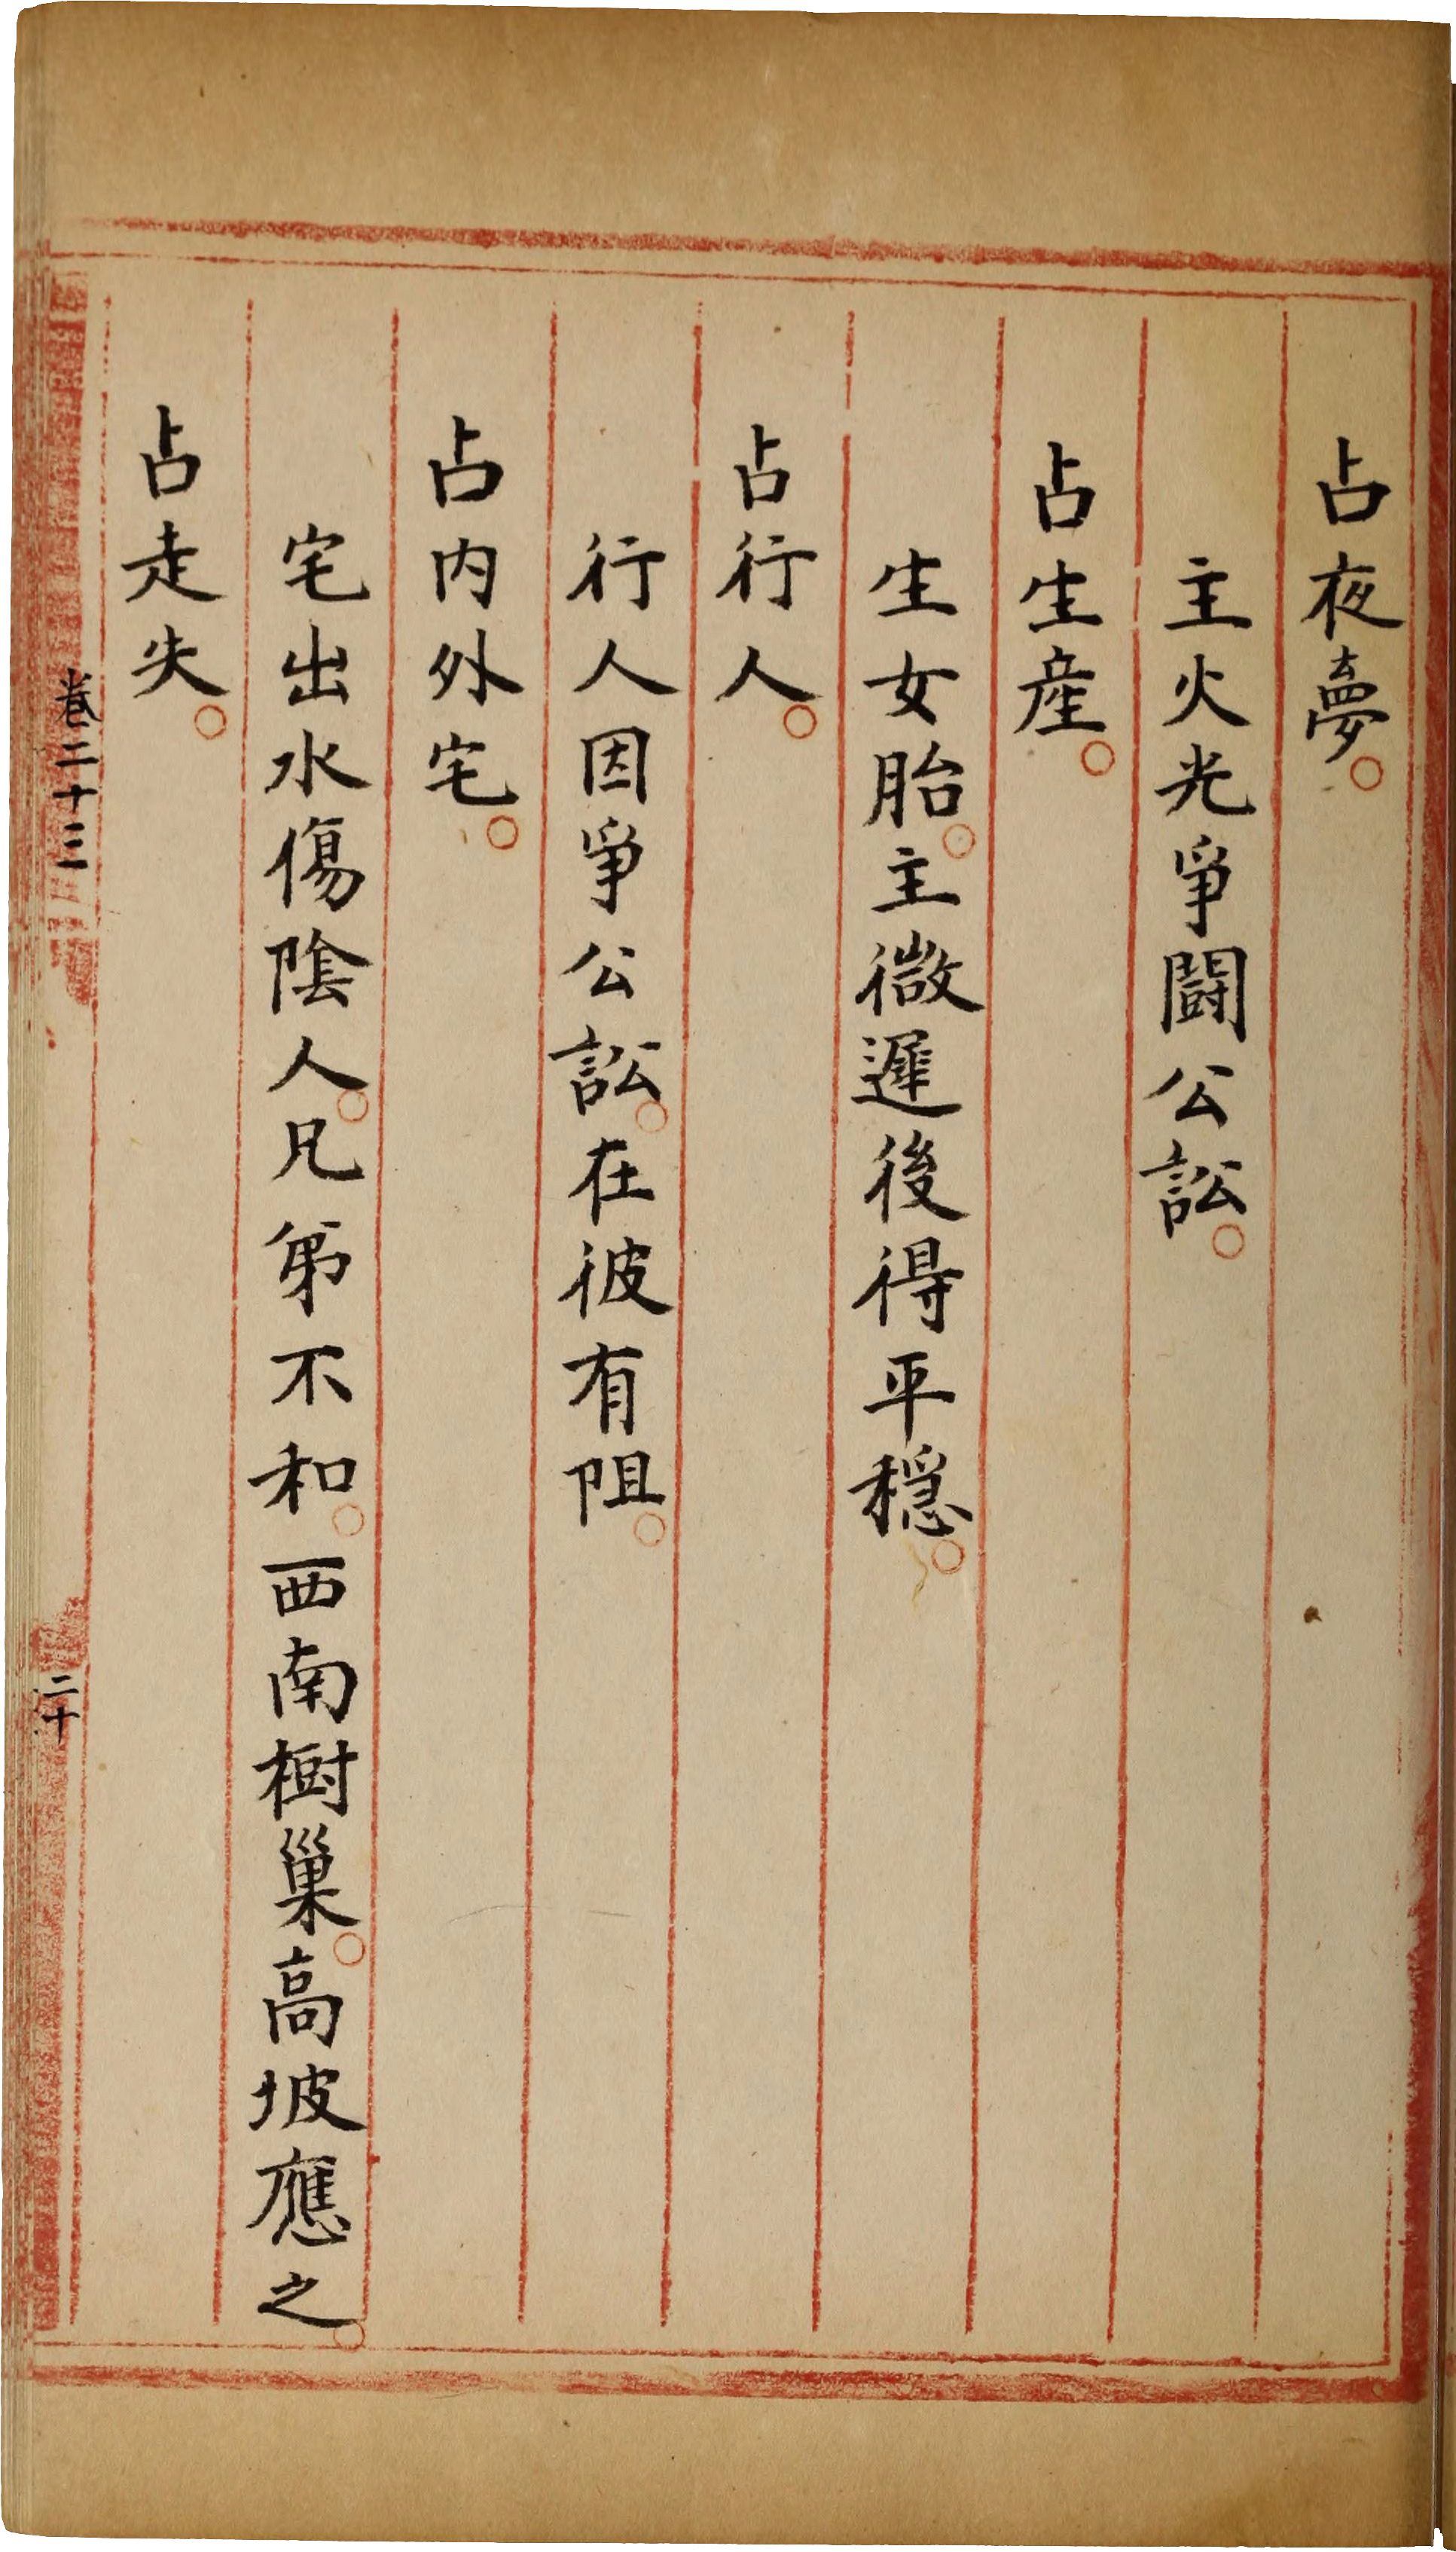 占夜夢。
主火光爭鬪公訟。
占生産。
生女胎。主微遲後得平穩。
占行人。
行人因爭公訟。在彼有阻。
占内外宅。
宅出水傷陰人。兄弟不和。西南樹巢。高坡應之。
占走失。
卷二十三
二十